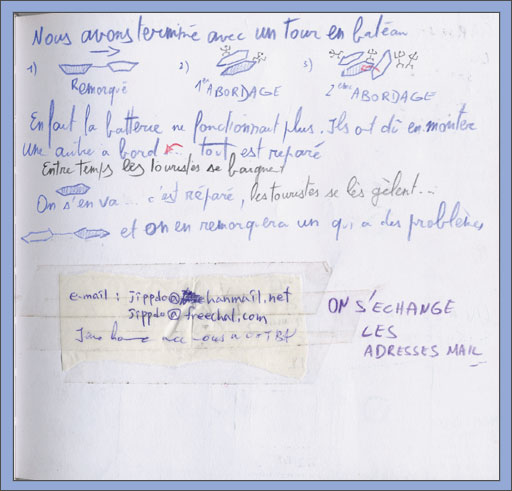 Nous avons terminé avec un tour en bateau
1) 2) 3)
Remorqué 1er ABORDAGE 2ème ABORDAGE
En fait la batterie ne fonctionnait plus. Ils ont dû en monter
une autre a bord ... tout est reparé
Entre temps les touristes se baignent
On s'en va... c'est réparé, les touristes se les gèlent...
et on en remorquera un qui a des problèmes
e-mail : jippdo@hanmail.net
jippdo@freechal.com
ON S'ECHANGE
LES
ADRESSES MAIL